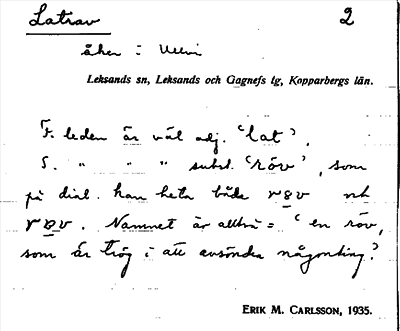 Latrav 2
åker i Ullvi
Leksands sn, Leksands och Gagnefs tg, Kopparbergs län.
F. leden är väl adj. 'lat'.
S. " " " subst. 'röv', som
på dial. kan heta både rov och
rov. Namnet är alltså = 'en röv,
som är trög i att avsöndra någonting'.
ERIK M. CARLSSON, 1935.